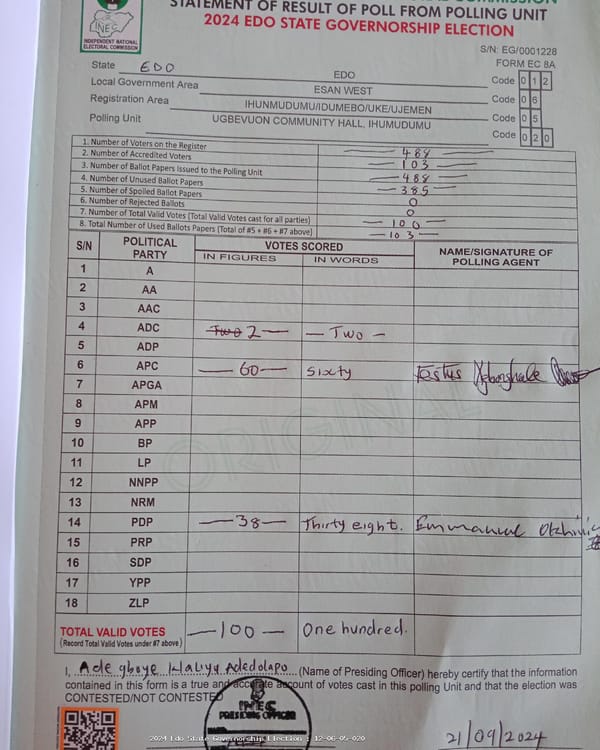 STATEMENT OF RESULT OF POLL FROM POLLING UNIT
2024 EDO STATE GOVERNORSHIP ELECTION
INEC
INDEPENDENT NATIONAL
ELECTORAL COMMISSION
S/N: EG/0001228
FORM EC 8A
State EDO EDO Code 0 1 2
Local Government Area ESAN WEST Code 0 6
Registration Area IHUNMUDUMU/IDUMEBO/UKE/UJEMEN Code 0 5
Polling Unit UGBEVUON COMMUNITY HALL, IHUMUDUMU Code 0 2 0
1. Number of Voters on the Register 488
2. Number of Accredited Voters 103
3. Number of Ballot Papers Issued to the Polling Unit 488
4. Number of Unused Ballot Papers 385
5. Number of Spoiled Ballot Papers 0
6. Number of Rejected Ballots 0
7. Number of Total Valid Votes (Total Valid Votes cast for all parties) 100
8. Total Number of Used Ballots Papers (Total of #5 + #6 + #7 above) 103
S/N POLITICAL PARTY VOTES SCORED NAME/SIGNATURE OF POLLING AGENT
IN FIGURES IN WORDS
1 A
2 AA
3 AAC
4 ADC Two 2 Two
5 ADP
6 APC 60 Sixty Festus
7 APGA
8 APM
9 APP
10 BP
11 LP
12 NNPP
13 NRM
14 PDP 38 Thirty eight. Emmanuel
15 PRP
16 SDP
17 YPP
18 ZLP
ORIGINAL
TOTAL VALID VOTES 100 One hundred.
(Record Total Valid Votes under #7 above)
I, Adegboye Waliyu Adedolapo (Name of Presiding Officer) hereby certify that the information
contained in this form is a true and accurate account of votes cast in this polling Unit and that the election was
CONTESTED/NOT CONTESTED
INEC
PRESIDING OFFICER
2024 Edo State Governorship Election : 12-06-05-020
21/09/2024